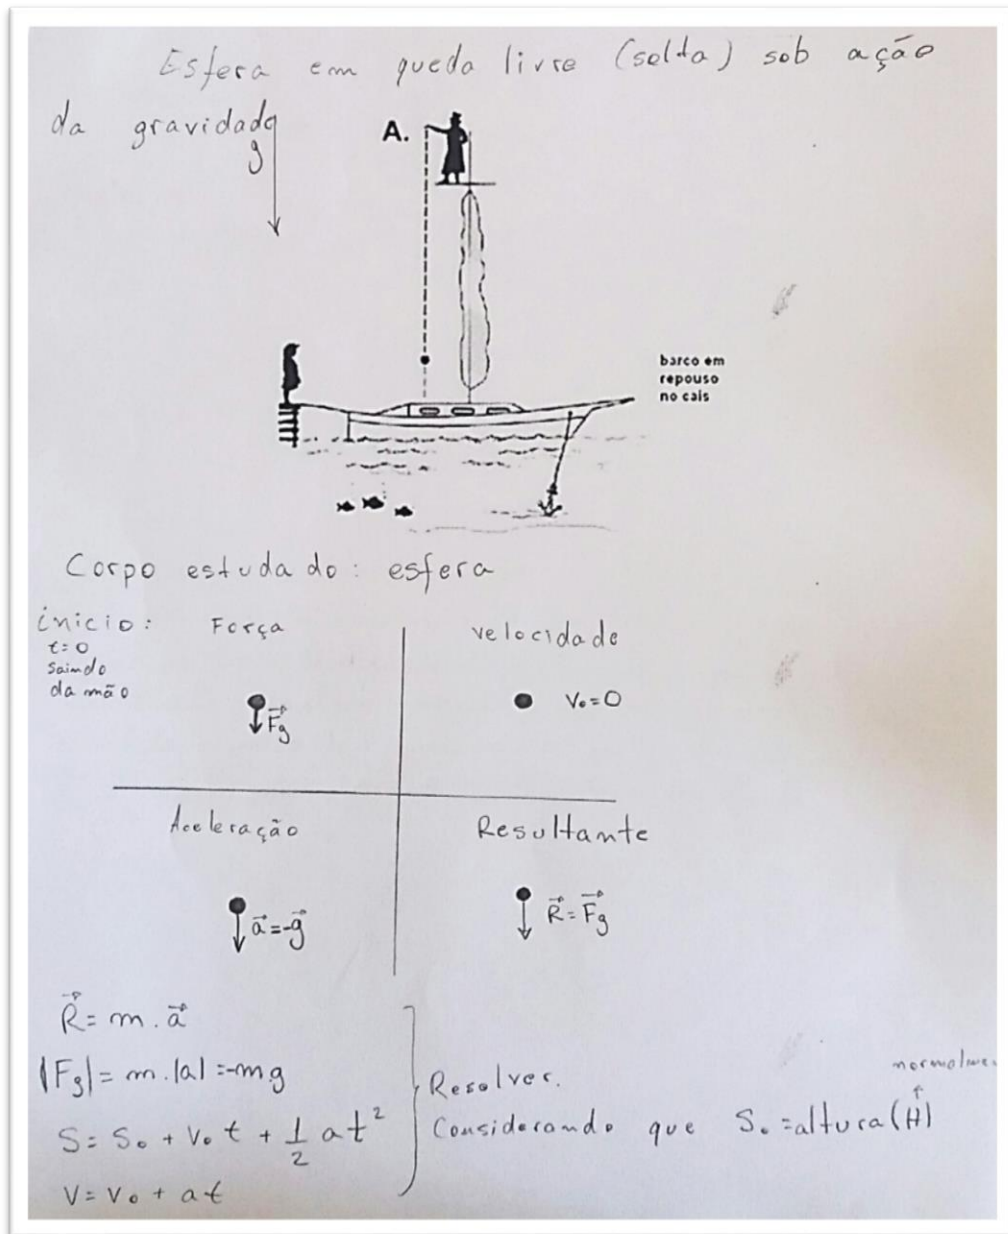 Esfera em queda livre (solta) sob ação
da gravidade
g
A.
barco em
repouso
no cais
Corpo estudado: esfera
início:
t=0
Saindo
da mão
Força
F⃗g
velocidade
V₀=0
Aceleração
a⃗=-g⃗
Resultante
R⃗=F⃗g
R⃗= m . a⃗
|Fg|= m.|a| =-mg
S= S₀ + V₀ t + 1/2 at²
V= V₀ + at
Resolver.
Considerando que S₀=altura(H)